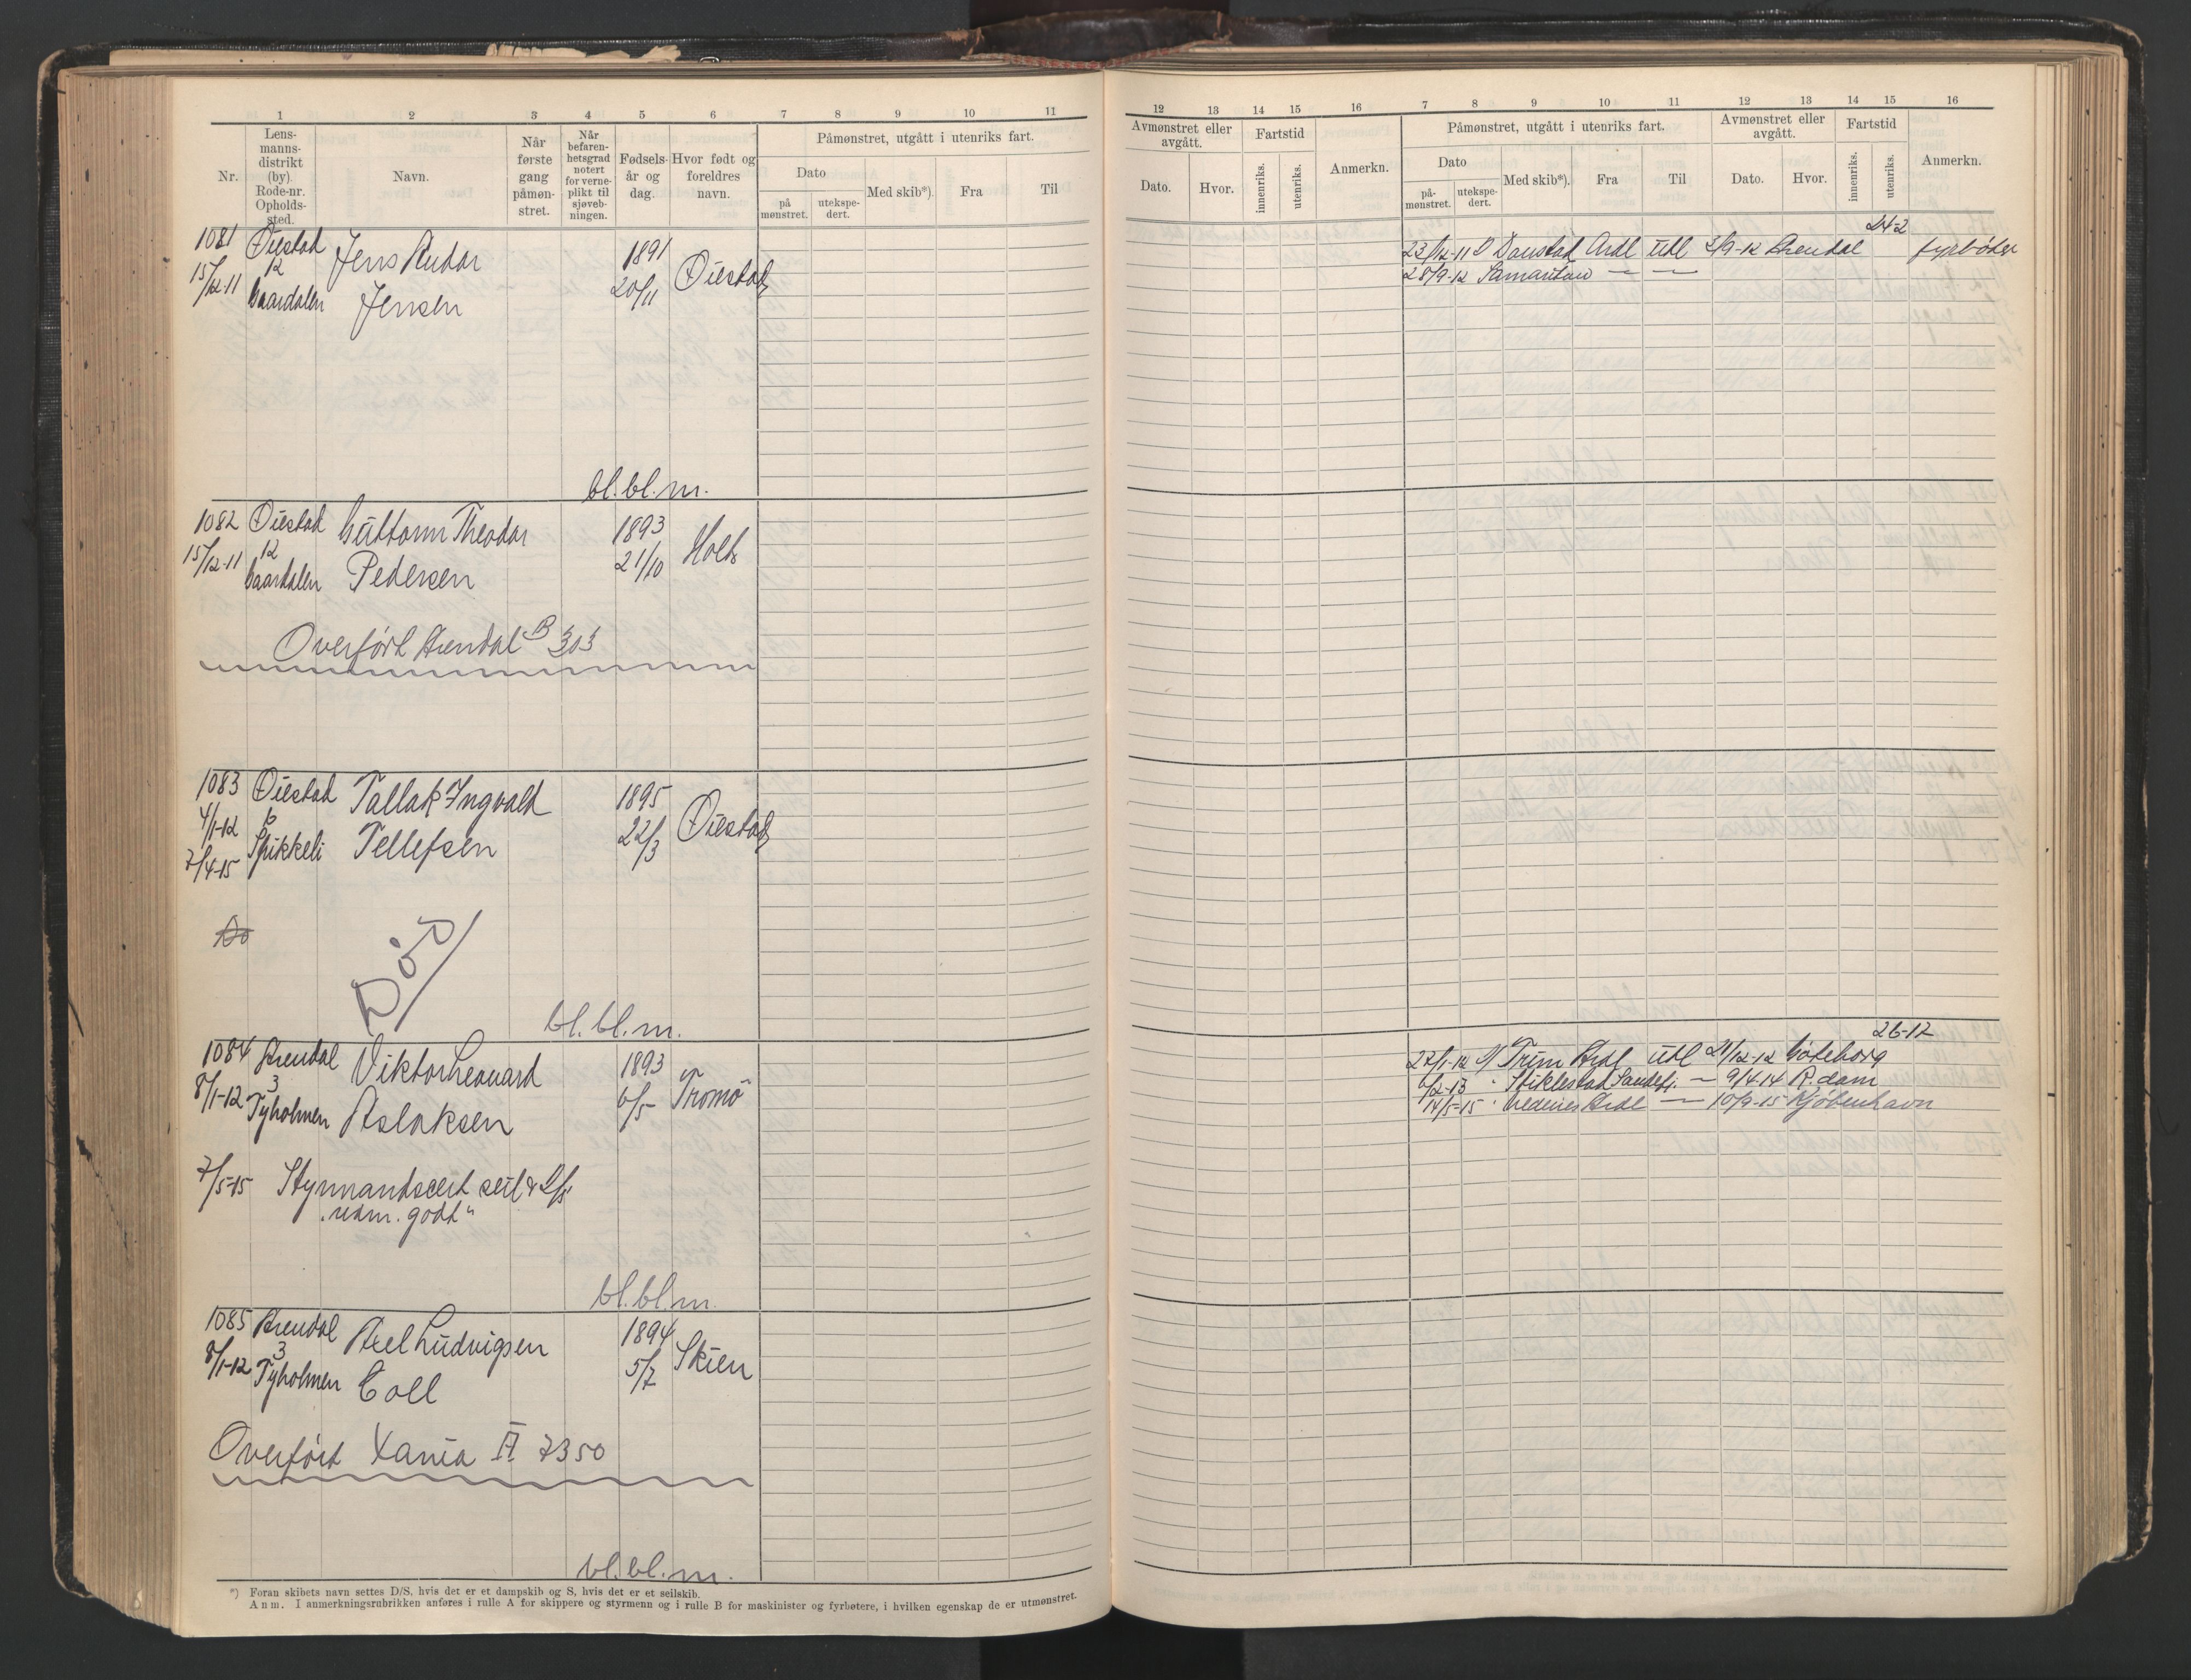 1 2 3 4 5 6 7 8 9 10 11
Nr.
Lens-
manns-
distrikt
(by).
Rode-nr.
Opholds-
sted.
Navn.
Når
første
gang
påmøn-
stret.
Når
befaren-
hetsgrad
notert
for verne-
plikt til
sjøveb-
ningen.
Fødsels-
år og
dag.
Hvor født og
foreldres
navn.
Påmønstret, utgått i utenriks fart.
Dato
på
mønstret.
utekspe-
dert.
Med skib*).
Fra
Til
1081 Øiestad Jens Gudar 1891 Øiestad
15/12-11 12 20/11
Gaardalen Jensen
bl. bl. m.
1082 Øiestad Guttorm Theodor 1893 Holt
15/12-11 12 21/10
Gaardalen Pedersen
Overført Arendal B 303
1083 Øiestad Tallak Ingvald 1895 Øiestad
4/1-12 22/3
7/4-15 Spikkeli Tellefsen
Do
Død
bl. bl. m.
1084 Arendal Viktor Leonard 1893 Tromö
8/1-12 3 6/5
Tyholmen Aslaksen
7/5-15 Styrmandscert seil & D/s
"udm. godt"
bl. bl. m.
1085 Arendal Axel Ludvigsen 1894 Skien
8/1-12 3 5/7
Tyholmen Coll
Overført Xania A 7350
bl. bl. m.
*) Foran skibets navn settes D/S, hvis det er et dampskib og S, hvis det er et seilskib.
Anm. I anmerkningsrubrikken anføres i rulle A for skippere og styrmenn og i rulle B for maskinister og fyrbøtere, i hvilken egenskap de er utmønstret.
12 13 14 15 16 7 8 9 10 11 12 13 14 15 16
Avmønstret eller
avgått.
Dato.
Hvor.
Fartstid
innenriks.
utenriks.
Anmerkn.
Påmønstret, utgått i utenriks fart.
Dato
på-
mønstret.
utekspe-
dert.
Med skib*).
Fra
Til
Avmønstret eller
avgått.
Dato.
Hvor.
Fartstid
innenriks.
utenriks.
Anmerkn.
242
23/12-11 D Danstad Ardl Utl 3/9-12 Arendal fyrbøter
28/9-12 Samaritan — —
26-12
22/1-12 S/ Trim Ardl Utl 21/12-12 Göteborg
6/2-13 " Stiklestad Sandefj. — 9/4-14 R.dam
14/5-15 " Nedenes Ardl — 10/9-15 Kjøbenhavn